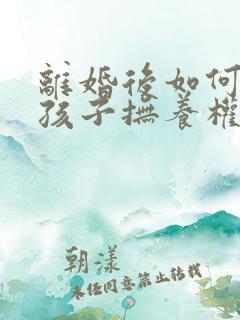 離婚後如何
孩子撫養權
朝漾
未任同意禁止转载